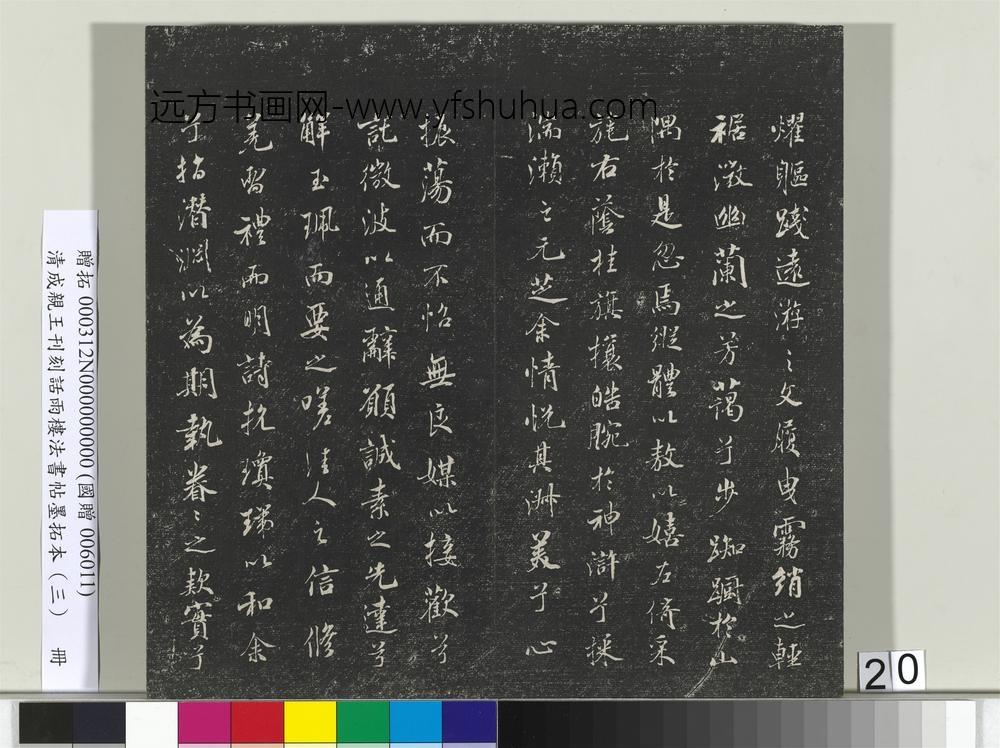 燿軀踐遠游之文履曳霧綃之輕
裾微幽蘭之芳藹兮步踟躕於山
隅於是忽焉縱體以敖以嬉左倚采
旄右蔭桂旗攘皓腕於神滸兮採
湍瀨之元芝余情悅其淑美兮心
振蕩而不怡無良媒以接歡兮
託微波以通辭願誠素之先達兮
解玉珮而要之嗟佳人之信脩
羌習禮而明詩抗瓊珶以和余
兮指潛淵以為期執眷〻之款實兮
远方书画网-www.yfshuhua.com
贈拓 000312N000000000 (國贈 006011)
清成親王刊刻話雨樓法書帖墨拓本（三） 冊
20